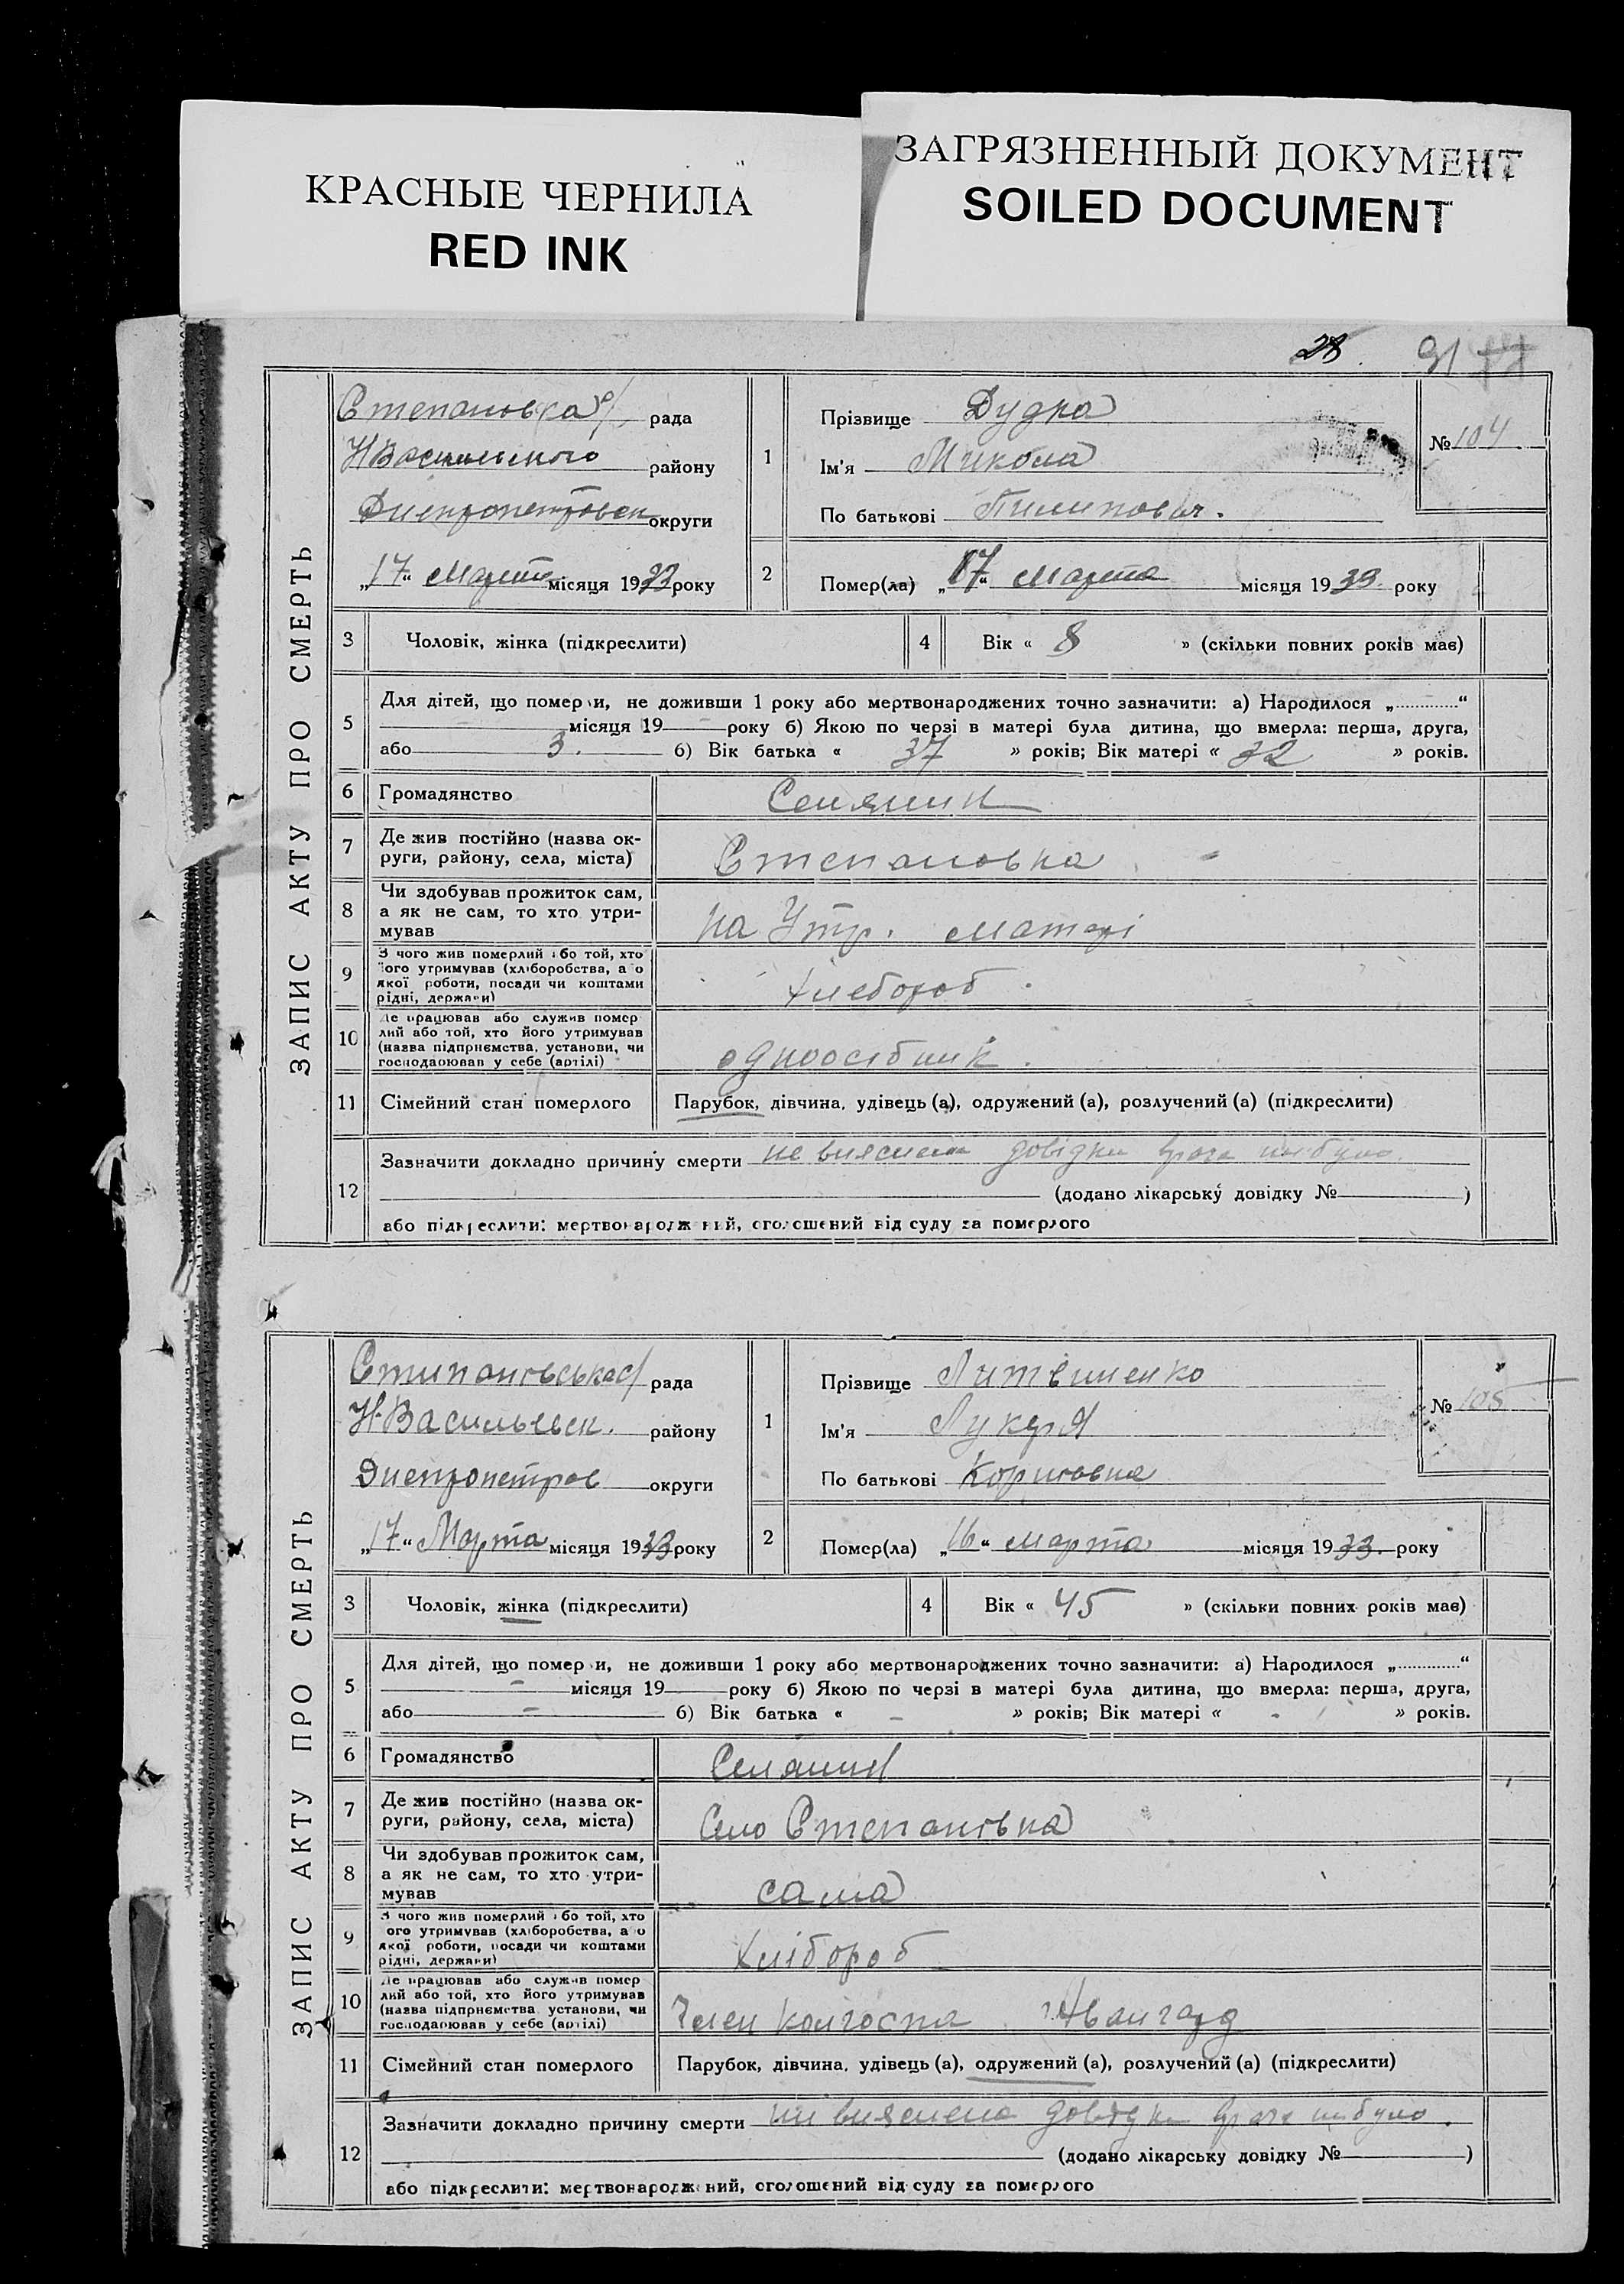 КРАСНЫЕ ЧЕРНИЛА
RED INK
ЗАГРЯЗНЕННЫЙ ДОКУМЕНТ
SOILED DOCUMENT
28 91
ЗАПИС АКТУ ПРО СМЕРТЬ
Степановка с/ рада
НВасильского району
Днепропетровск округи
„17“ Марта місяця 1933 року
1
Прізвище Дудка
Ім'я Микола
По батькові Пилипович.
№ 104
2 Помер(ла) „17“ Марта місяця 1933 року
3 Чоловік, жінка (підкреслити)
4 Вік « 8 » (скільки повних років має)
5 Для дітей, що померли, не доживши 1 року або мертвонароджених точно зазначити: а) Народилося „............“
місяця 19 року б) Якою по черзі в матері була дитина, що вмерла: перша, друга,
або 3. б) Вік батька « 37 » років; Вік матері « 32 » років.
6 Громадянство Селянин
7 Де жив постійно (назва ок-
руги, району, села, міста) Степановка
8 Чи здобував прожиток сам,
а як не сам, то хто утри-
мував на Утр. матері
9 З чого жив померлий або той, хто
його утримував (хліборобства, або
якої роботи, посади чи коштами
рідні, держави) хлебороб.
10 Де працював або служив помер
лий або той, хто його утримував
(назва підприємства, установи, чи
господарював у себе (артілі) одноосібник.
11 Сімейний стан померлого Парубок, дівчина, удівець (а), одружений (а), розлучений (а) (підкреслити)
12 Зазначити докладно причину смерти не вияснена довідки врача небуло.
(додано лікарську довідку № )
або підкреслити: мертвонароджений, оголошений від суду за померлого
ЗАПИС АКТУ ПРО СМЕРТЬ
Стипановська с/ рада
Н-Васильевск. району
Днепропетров округи
„17“ Марта місяця 1933 року
1
Прізвище Литвиненко
Ім'я Лукеря
По батькові
№ 105
2 Помер(ла) „16“ марта місяця 1933. року
3 Чоловік, жінка (підкреслити)
4 Вік « 45 » (скільки повних років має)
5 Для дітей, що померли, не доживши 1 року або мертвонароджених точно зазначити: а) Народилося „............“
– місяця 19 року б) Якою по черзі в матері була дитина, що вмерла: перша, друга,
або – б) Вік батька « – » років; Вік матері « - » років.
6 Громадянство Селянин
7 Де жив постійно (назва ок-
руги, району, села, міста) Село Степановка
8 Чи здобував прожиток сам,
а як не сам, то хто утри-
мував сама
9 З чого жив померлий або той, хто
його утримував (хліборобства, або
якої роботи, посади чи коштами
рідні, держави) хлібороб
10 Де працював або служив помер
лий або той, хто його утримував
(назва підприємства, установи, чи
господарював у себе (артілі) Член колгоспа Авангард
11 Сімейний стан померлого Парубок, дівчина, удівець (а), одружений (а), розлучений (а) (підкреслити)
12 Зазначити докладно причину смерти ни вияснено довідки врача небуло.
(додано лікарську довідку № )
або підкреслити: мертвонароджений, оголошений від суду за померлого